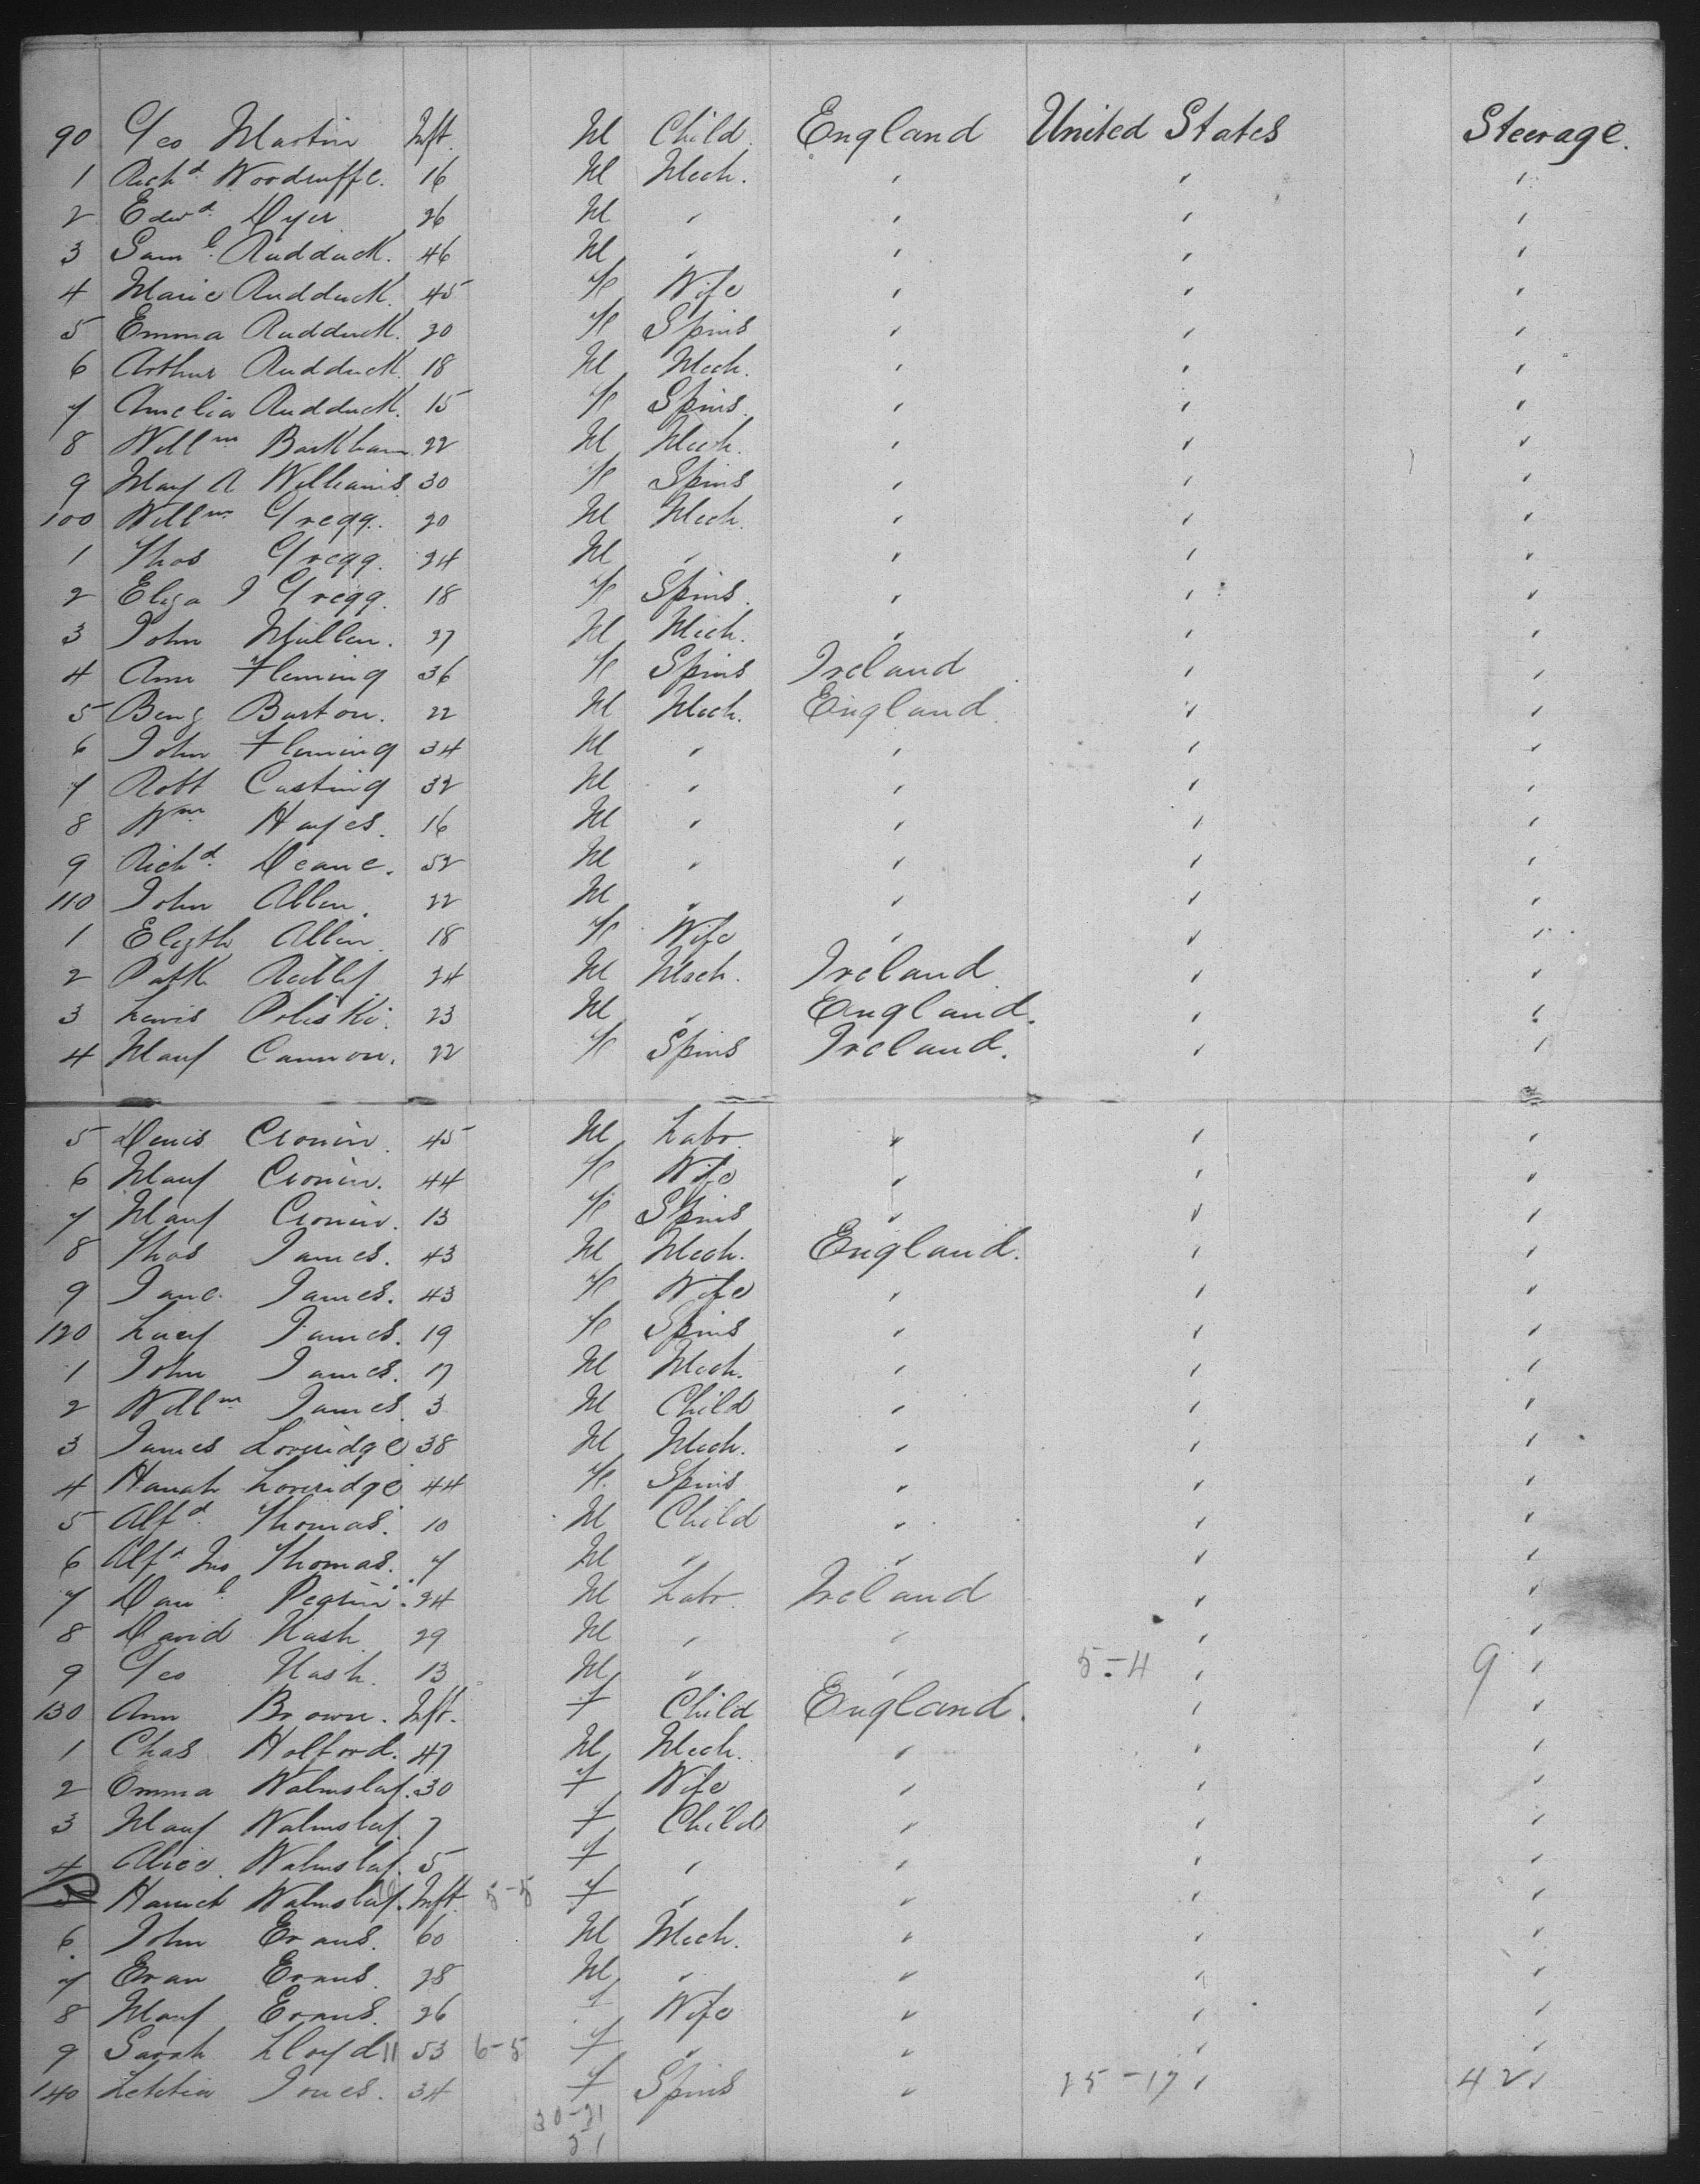 90 Geo Martin Inft. M Child England United States Steerage.
1 Richd Woodruffe. 16 M Mech. " " "
2 Edwd Dyer 26 M " " " "
3 Saml Rudduck. 46 M " " " "
4 Marie Rudduck. 45 F Wife " " "
5 Emma Rudduck. 20 F Spins " " "
6 Arthur Rudduck. 18 M Mech. " " "
7 Amelia Rudduck. 15 F Spins. " " "
8 Willm Barkham. 22 M Mech. " " "
9 Mary A Williams 30 F Spins " " "
100 Willm Gregg. 20 M Mech. " " "
1 Thos Gregg. 24 M " " " "
2 Eliza J Gregg. 18 F Spins. " " "
3 John Mullen. 27 M Mech. " " "
4 Ann Fleming 36 F Spins Ireland " "
5 Benj Barton. 22 M Mech. England " "
6 John Fleming 34 M " " " "
7 Robt Casting 32 M " " " "
8 Wm Hayes. 16 M " " " "
9 Richd Deane. 52 M " " " "
110 John Allen. 22 M " " " "
1 Elizth Allen 18 F Wife " " "
2 Patk 24 M Mech. Ireland " "
3 Lewis Poliski. 23 M " England. " "
4 Mary Cannon. 22 F Spins Ireland. " "
5 Denis Cronin. 45 M Labr. " " "
6 Mary Cronin. 44 F Wife " " "
7 Mary Cronin. 13 F Spins " " "
8 Thos James. 43 M Mech. England. " "
9 Jane James. 43 F Wife " " "
120 Lucy James. 19 F Spins " " "
1 John James. 17 M Mech. " " "
2 Willm James. 3 M Child " " "
3 James Loveridge 38 M Mech. " " "
4 Hanah Loveridge 44 F. Spins " " "
5 Alfd Thomas. 10 M Child " " "
6 Alfd Jno Thomas. 7 M " " " "
7 Danl 24 M Labr. Ireland " "
8 David Nash 29 M " " " "
9 Geo Nash. 13 M " " 5-4 " 9 "
130 Ann Brown. Inft. F Child England. " "
1 Chas Holford. 47 M Mech. " " "
2 Emma Walmsley. 30 F Wife " " "
3 Mary Walmsley 7 F Child " " "
4 Alice Walmsley. 5 F " " " "
5 Harriet Walmsley. Inft. 5-5 F " " " "
6 John Evans. 60 M Mech. " " "
7 Evan Evans. 28 M " " " "
8 Mary Evans. 26 f Wife " " "
9 Sarah Lloyd 11 53 6-5 F " " " "
140 Letitia Jones. 34 F Spins " 25-17 " 42 "
30-21
51